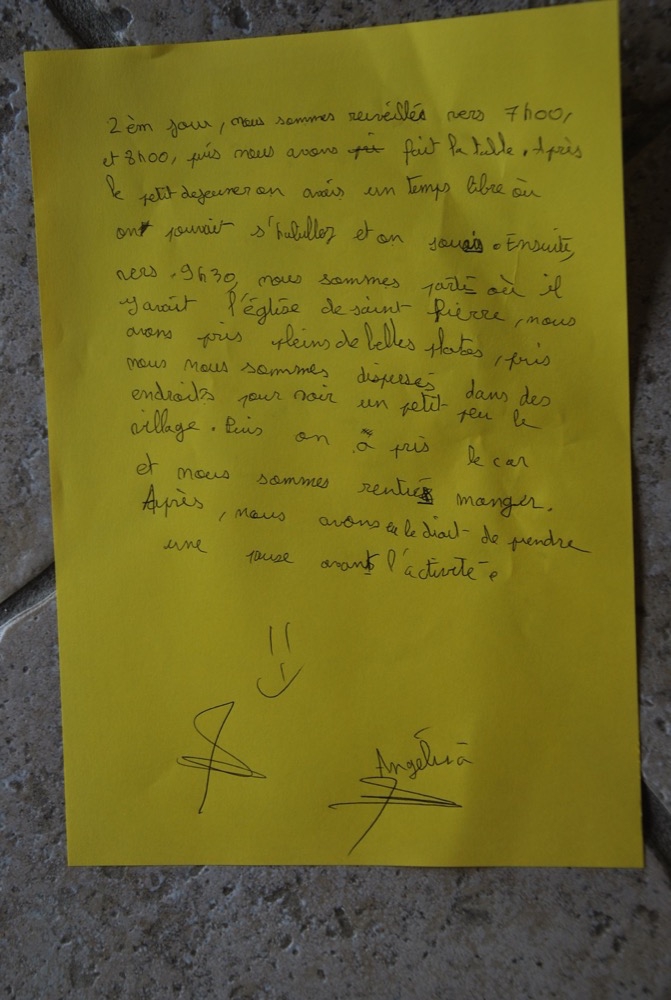 2èm jour, nous sommes reivéillés vers 7h00,
et 8h00, puis nous avons fait la table. Après
le petit dejeuner on avais un temps libre où
on pouvait s'habillez et on jouais. Ensuite,
vers 9h30, nous sommes partie où il
y avait l'église de saint Pierre, nous
avons pris pleins de belles photos, puis
nous nous sommes dispersés dans des
endroits pour voir un petit peu le
village. Puis on a pris le car
et nous sommes rentrés manger.
Après, nous avons eu le droit de prendre
une pause avant l'activité.
Angélisa